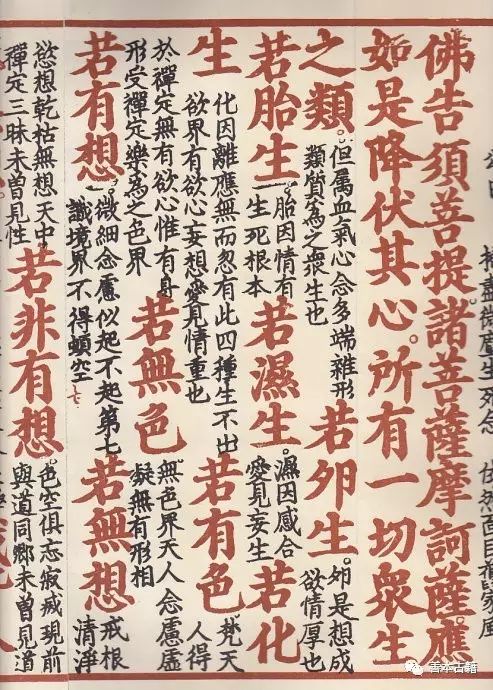 佛告須菩提諸菩薩摩訶薩應
如是降伏其心。所有一切衆生
之類。
但属血氣心念多端雜形
類質為之衆生也
若卵生。
卵是想成
欲情厚也
若胎生
胎因情有
生死根本
若濕生。
濕因感合
愛見妄生
若化
生
化因離應無而忽有此四種生不出
欲界有欲心妄想愛見情重也
若有色
梵天
人得
於禪定無有欲心惟有身
形受禪定樂為之色界
若無色
無色界天人念慮虛
凝無有形相
若有想
微細念應似起不起第七
識境界不得頓空
若無想
戒根
清淨
慾想乾枯無想天中
禪定三昧未曾見性
若非有想。
色空俱忘寂滅現前
與道同鄉未曾見道
善本古籍